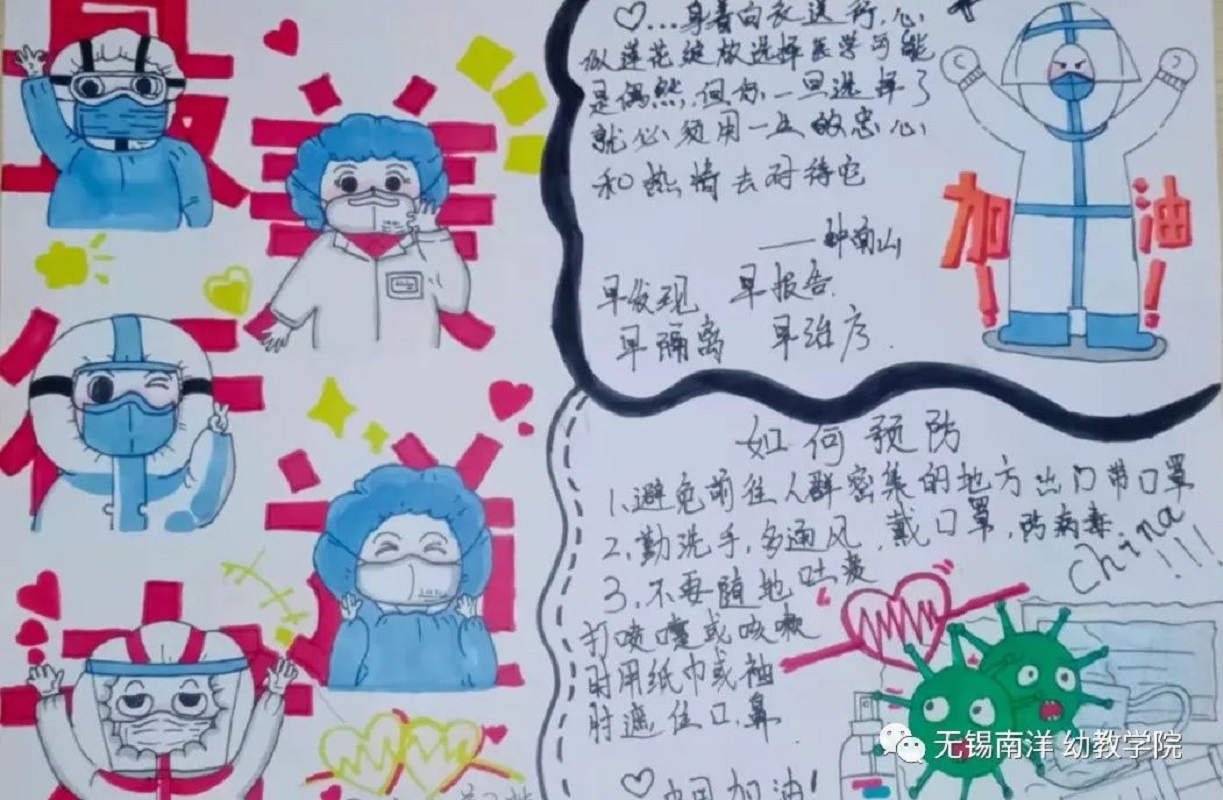 最美
最美
♡...身着白衣送行,心
似莲花绽放选择医学可能
是偶然,但你一旦选择了
就必须用一生的忠心
和热情去对待它
——钟南山
早发现 早报告
早隔离 早治疗.
加油!!
如何预防
1.避免前往人群密集的地方出门带口罩
2.勤洗手,多通风,戴口罩,防病毒.
China!!!
3.不要随地吐痰
打喷嚏或咳嗽
时用纸巾或袖
肘遮住口鼻
♡中国加油!
无锡南洋 幼教学院